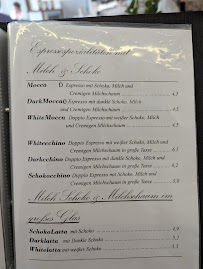 Espressospezialitäten mit
Milch & Schoko
Mocca Espresso mit Schoko, Milch und
Cremigen Milchschaum 4.5
DarkMocca Espresso mit dunkle Schoko, Milch
und Cremigen Milchschaum 4.5
WhiteMocca Doppio Espresso mit weißer Schoko, Milch
und Cremigen Milchschaum
Whitecchino Doppio Espresso mit weißer Schoko, Milch
und Cremigen Milchschaum in große Tasse
Darkcchino Doppio Espresso mit dunkle Schoko, Milch
und Cremigen Milchschaum in große Tasse
Schokocchino Doppio Espresso mit Schoko, Milch
und Cremigen Milchschaum in große Tasse
Milch Schoko & Milchschaum im
großes Glas
SchokoLatta mit Schoko 4.9
Darklatta mit Dunkle Schoko
Whitelatta mit weißer Schoko